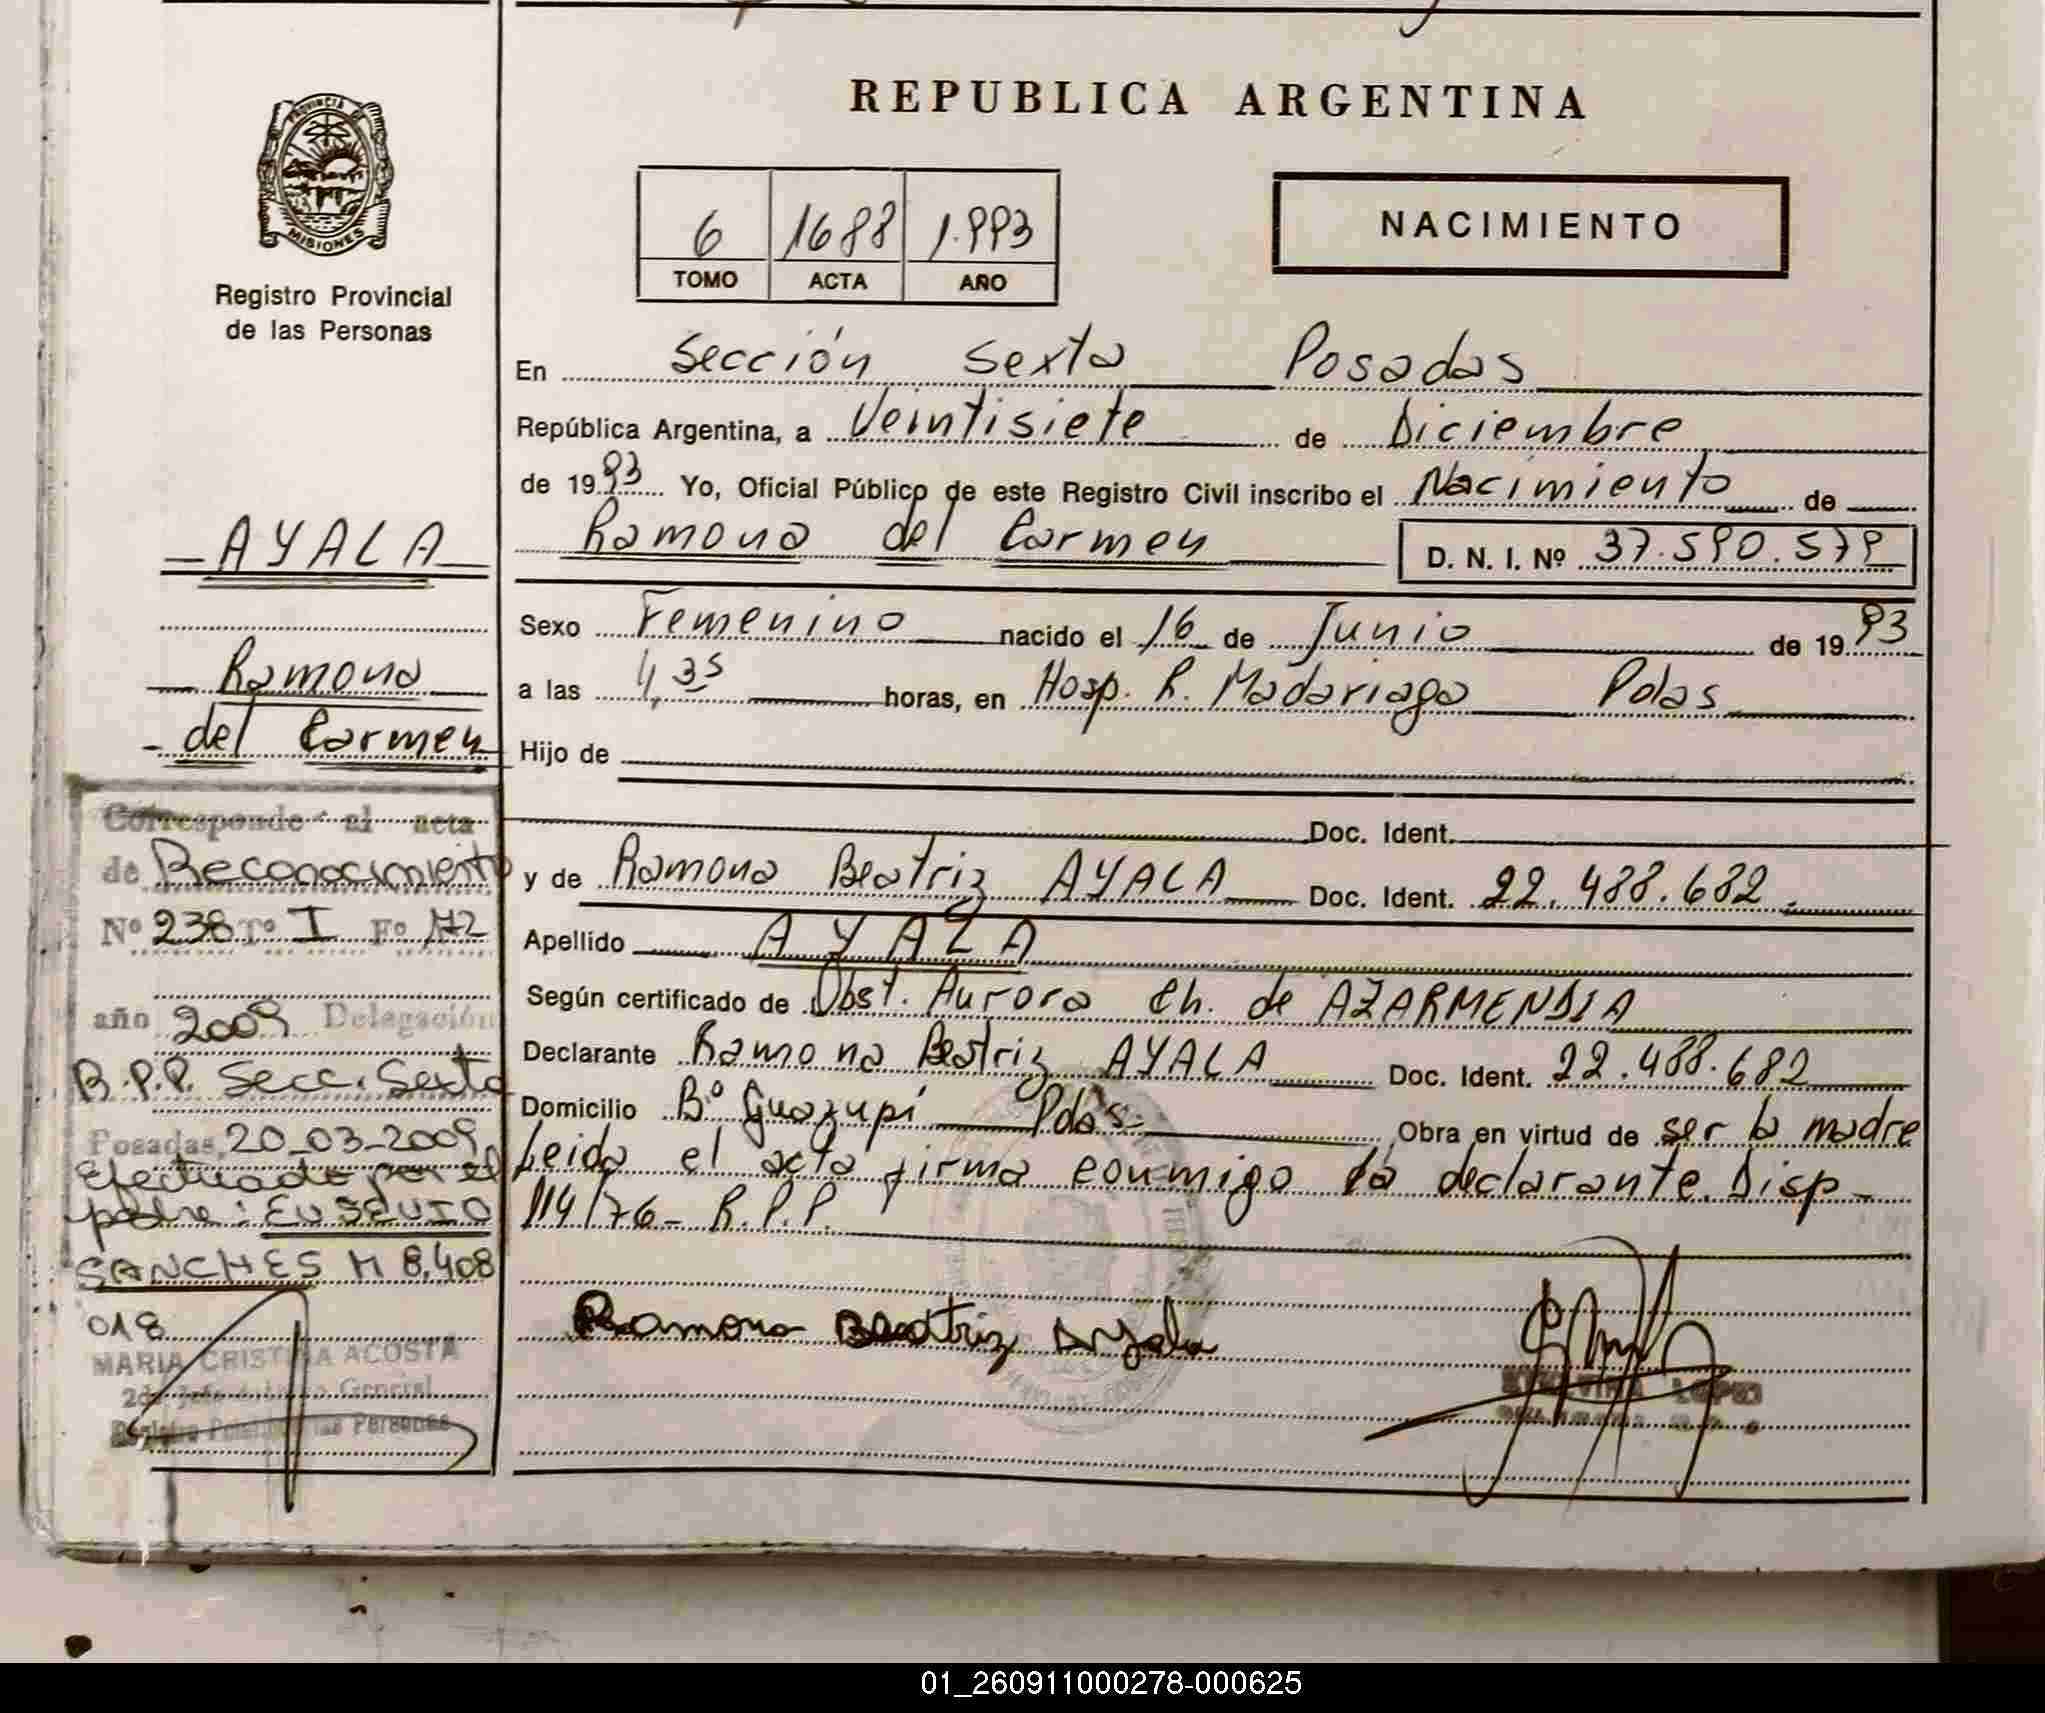 REPUBLICA ARGENTINA
PROVINCIA DE MISIONES
Registro Provincial
de las Personas
6 1688 1.993
TOMO ACTA AÑO
NACIMIENTO
En Sección Sexta Posadas
República Argentina, a Veintisiete de Diciembre
de 1993 Yo, Oficial Público de este Registro Civil inscribo el Nacimiento de
Ramona del Carmen D. N. I. Nº 37.590.579
Sexo Femenino nacido el 16 de Junio de 1993
a las 4,35 horas, en Hosp. R. Madariaga Pdas
Hijo de
Doc. Ident.
y de Ramona Beatriz AYALA Doc. Ident. 22.488.682.
Apellido AYALA
Según certificado de Obst. Aurora Ch. de AZARMENDIA
Declarante Ramona Beatriz AYALA Doc. Ident. 22.488.682
Domicilio Bº Guazupí Pdas. Obra en virtud de ser la madre
Leida el acta firma conmigo la declarante. Disp
114/76- R.P.P.
Ramona Beatriz Ayala
LOPEZ
- AYALA -
Ramona
- del Carmen
Corresponde al acta
de Reconocimiento
Nº 238 Tº I Fº
año 2009 Delegación
R.P.P. Secc. Sexta
Posadas, 20-03-2009
Efectuado por el
padre: EUSEVIO
SANCHES M 8.408
018
MARIA CRISTINA ACOSTA
2da Jefe General
Registro Personas
01_260911000278-000625